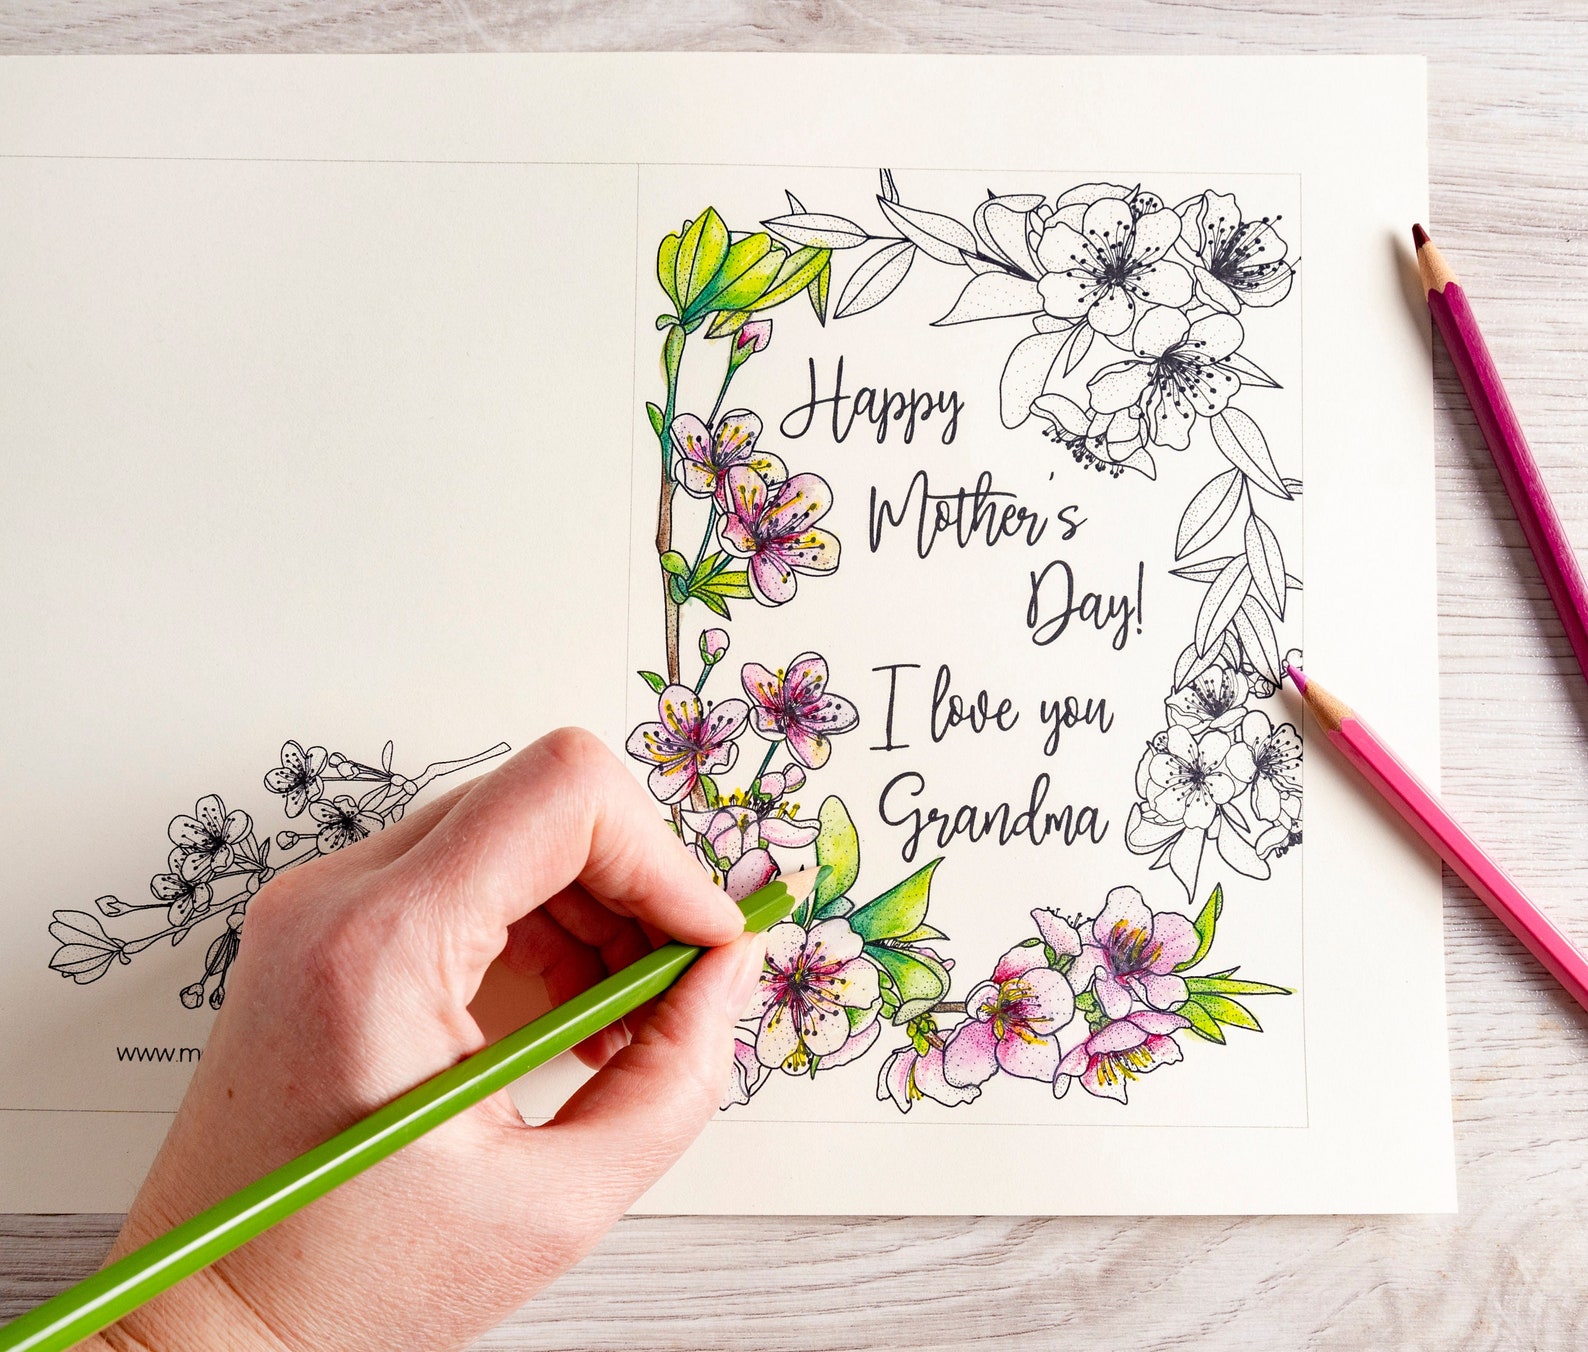 Happy
Mother's
Day!
I love you
Grandma